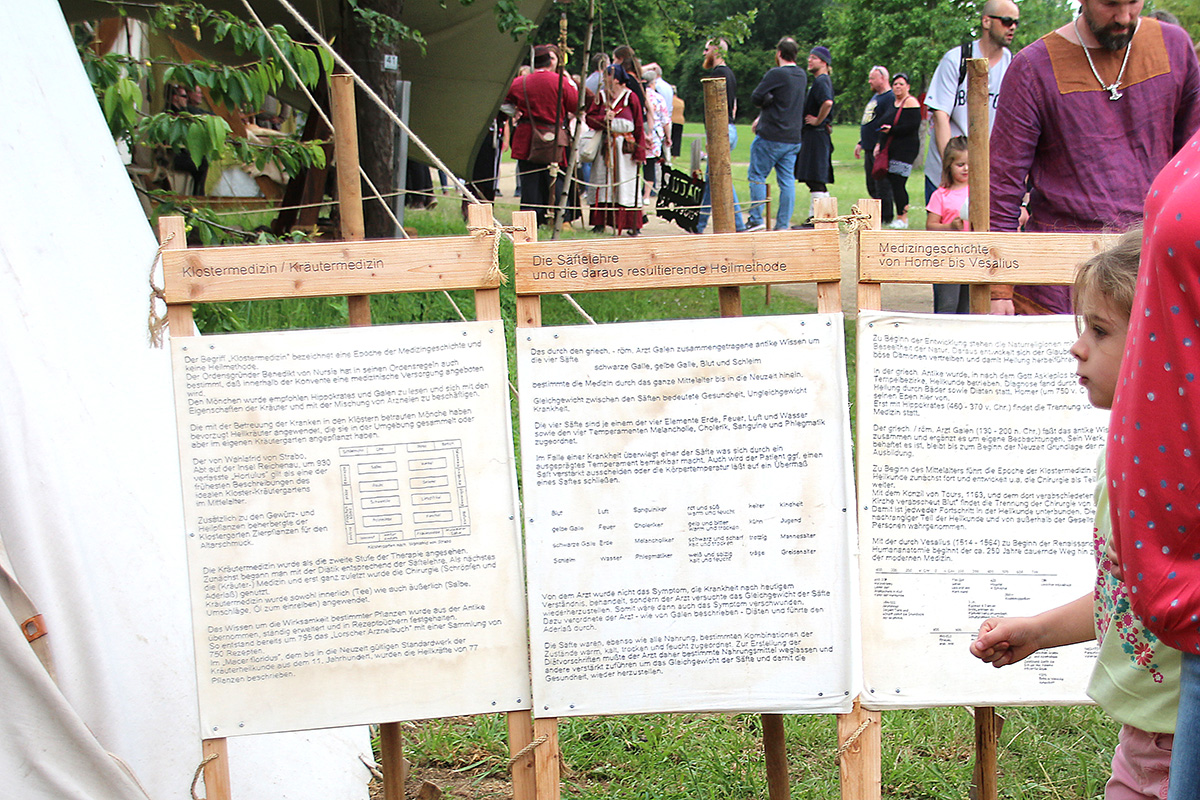 41
Klostermedizin / Kräutermedizin
Der Begriff „Klostermedizin" bezeichnet eine Epoche der Medizingeschichte und
keine Heilmethode.
Der Ordensgründer Benedikt von Nursia hat in seinen Ordensregeln auch
bestimmt, daß innerhalb der Konvente eine medizinische Versorgung angeboten
wird.
Den Mönchen wurde empfohlen Hippokrates und Galen zu lesen und sich mit den
Eigenschaften der Kräuter und mit der Mischung von Arzneien zu beschäftigen.
Die mit der Betreuung der Kranken in den Klöstern betrauten Mönche haben
bevorzugt Heilkräuter angewendet, die sie in der Umgebung gesammelt oder
aber im eigenen Kräutergarten angepflanzt haben.
Der von Walahfrid von Strabo,
Abt auf der Insel Reichenau, um 830
verfasste „Hortulus" gilt als eine der
frühesten Beschreibungen des
idealen Kloster-Kräutergartens
im Mittelalter.
Zusätzlich zu den Gewürz- und
Heilpflanzen beherbergte der
Klostergarten Zierpflanzen für den
Altarschmuck.
Die Kräutermedizin wurde als die zweite Stufe der Therapie angesehen.
Zunächst begann man mit der Diätik entsprechend der Säftelehre. Als nächstes
die (Kräuter-) Medizin und erst ganz zuletzt wurde die Chirurgie (Schröpfen und
Aderlaß) genutzt.
Kräutermedizin wurde sowohl innerlich (Tee) wie auch äußerlich (Salbe,
Umschläge, Öl zum einreiben) angewendet.
Das Wissen um die Wirksamkeit bestimmter Pflanzen wurde aus der Antike
übernommen, ständig erweitert und in Rezeptbüchern festgehalten.
So entstand bereits um 795 das „Lorscher Arzneibuch" mit einer Sammlung von
750 Rezepten.
Im „Macer floridus", dem bis in die Neuzeit gültigen Standardwerk der
Kräuterheilkunde aus dem 11. Jahrhundert, wurden die Heilkräfte von 77
Pflanzen beschrieben.
Die Säftelehre
und die daraus resultierende Heilmethode
Das durch den griech. - röm. Arzt Galen zusammengetragene antike Wissen um
die vier Säfte
schwarze Galle, gelbe Galle, Blut und Schleim
bestimmte die Medizin durch das ganze Mittelalter bis in die Neuzeit hinein.
Gleichgewicht zwischen den Säften bedeutete Gesundheit, Ungleichgewicht
Krankheit.
Die vier Säfte sind je einem der vier Elemente Erde, Feuer, Luft und Wasser
sowie den vier Temperamenten Melancholie, Cholerik, Sanguine und Phlegmatik
zugeordnet.
Im Falle einer Krankheit überwiegt einer der Säfte was sich durch ein
ausgeprägtes Temperament bemerkbar macht. Auch wird der Patient ggf. einen
Saft verstärkt ausscheiden oder die Körpertemperatur läßt auf ein Übermaß
eines Saftes schließen.
Blut Luft Sanguiniker rot und süß heiter Kindheit
warm und feucht
gelbe Galle Feuer Choleriker gelb und bitter kühn Jugend
warm und trocken
schwarze Galle Erde Melancholiker schwarz und scharf trotzig Mannesalter
kalt und trocken
Schleim Wasser Phlegmatiker weiß und salzig träge Greisenalter
kalt und feucht
Von dem Arzt wurde nicht das Symptom, die Krankheit nach heutigem
Verständnis, behandelt, sondern der Arzt versuchte das Gleichgewicht der Säfte
wiederherzustellen. Somit wäre dann auch das Symptom verschwunden.
Dazu verordnete der Arzt - wie von Galen beschrieben - Diäten und führte den
Aderlaß durch.
Die Säfte waren, ebenso wie alle Nahrung, bestimmten Kombinationen der
Zustände warm, kalt, trocken und feucht zugeordnet. Zur Erstellung der
Diätvorschriften mußte der Arzt daher bestimmte Nahrungsmittel weglassen und
andere verstärkt zuführen um das Gleichgewicht der Säfte und damit die
Gesundheit, wieder herzustellen.
Medizingeschichte
von Homer bis Vesalius
Zu Beginn der Entwicklung stehen die Naturreligionen
Beseeltheit der Natur. Daraus entwickelt sich der Glaube
böse Dämonen vertreiben und damit Heilung herbeiführen
In der griech. Antike wurde, in nach dem Gott Asklepios
Tempelbezirke, Heilkunde betrieben. Diagnose fand durch
Heilung durch Bäder sowie Diäten statt. Homer (um 750 v.
seinen Epen hier von.
Erst mit Hippokrates (460 - 370 v. Chr.) findet die Trennung vo
Medizin statt.
Der griech. / röm. Arzt Galen (130 - 200 n. Chr.) faßt das antike Wis
zusammen und ergänzt es um eigene Beobachtungen. Sein Werk,
behaftet es ist, bleibt bis zum Beginn der Neuzeit Grundlage der
Ausbildung.
Zu Beginn des Mittelalters führt die Epoche der Klostermedizin d
Heilkunde zunächst fort und entwickelt u.a. die Chirurgie als Teil
weiter.
Mit dem Konzil von Tours, 1163, und dem dort verabschiedeten
Kirche verabscheut Blut" findet die Trennung der Chirurgie von
Damit ist jedweder Fortschritt in der Heilkunde unterbunden. Die
nachrangiger Teil der Heilkunde und von außerhalb der Gesells
Personen wahrgenommen.
Mit der durch Vesalius (1514 - 1564) zu Beginn der Renaissance
Humananatomie beginnt der ca. 250 Jahre dauernde Weg hin z
der modernen Medizin.